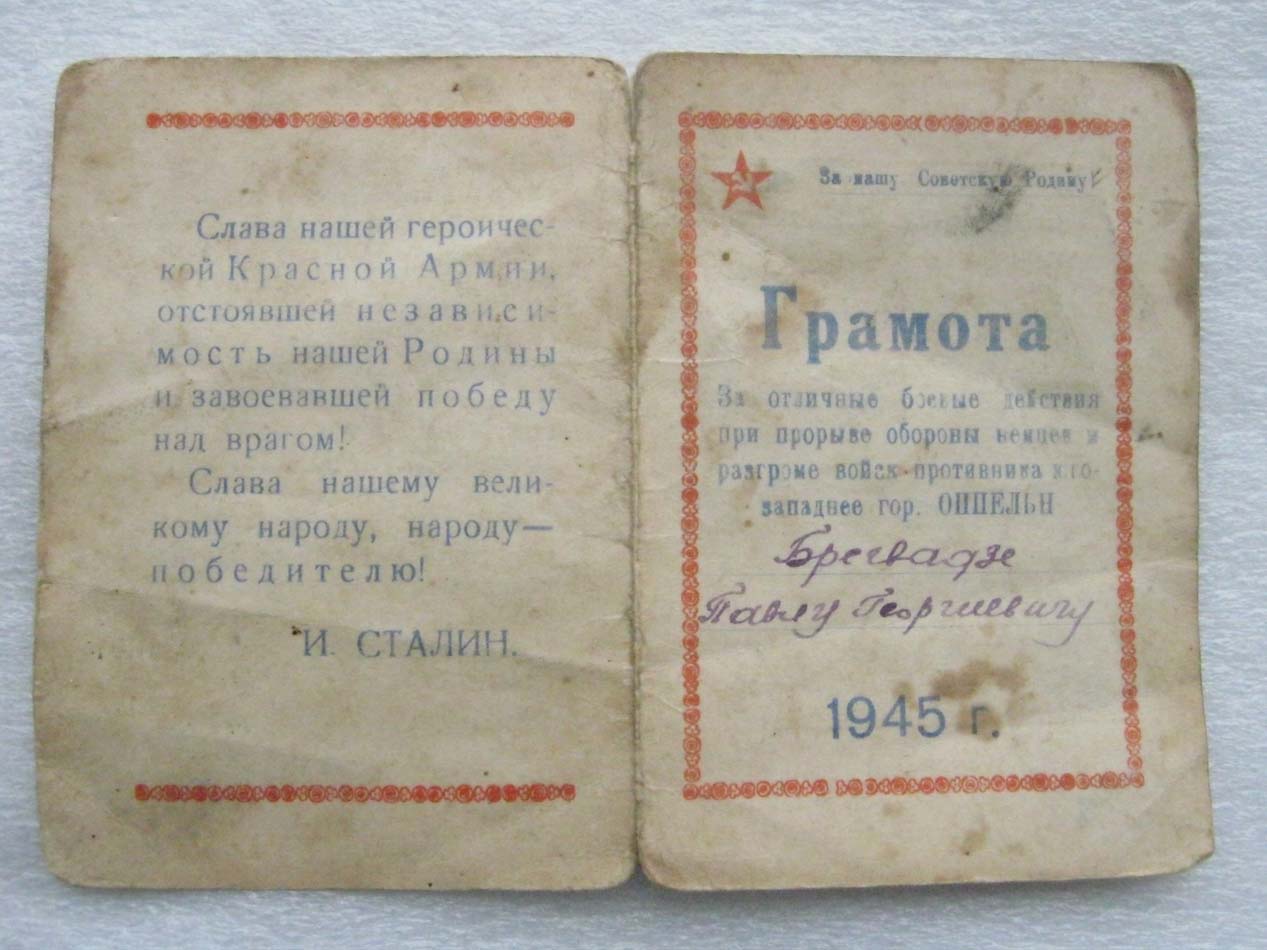 Слава нашей героичес-
кой Красной Армии,
отстоявшей независи-
мость нашей Родины
и завоевавшей победу
над врагом!
Слава нашему вели-
кому народу, народу—
победителю!
И. СТАЛИН.
За нашу Советскую Родину!
Грамота
За отличные боевые действия
при прорыве обороны немцев и
разгроме войск противника юго-
западнее гор. ОППЕЛЬН
Брегвадзе
Павлу Георгиевичу
1945 г.